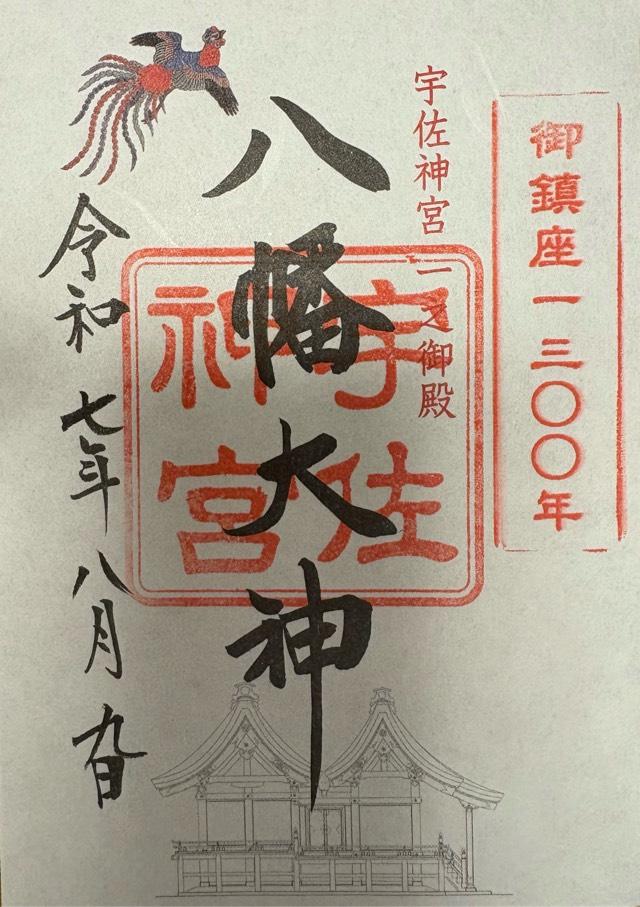 御鎮座一三〇〇年
宇佐神宮 一之御殿
八幡大神
宇佐
神宮
令和七年八月九日